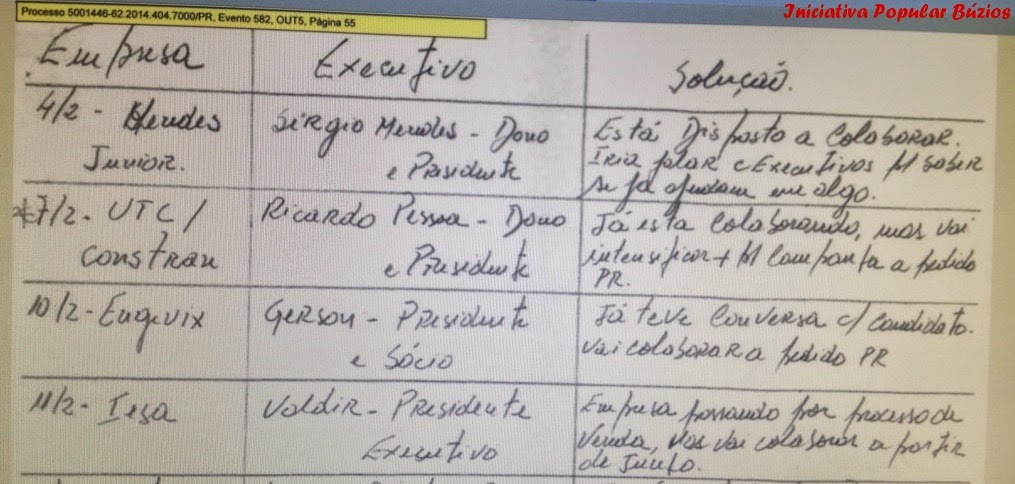 Processo 5001446-62.2014.404.7000/PR, Evento 582, OUT5, Página 55
Iniciativa Popular Búzios
Empresa Executivo Solução.
4/2 - Mendes Sérgio Mendes - Dono Está Disposto a Colaborar.
Junior. e Presidente Iria falar c Executivos p/ saber
se já ajudam em algo.
*7/2 - UTC / Ricardo Pessoa - Dono Já esta Colaborando, mas vai
Constran e Presidente intensificar + p/ Campanha a pedido
PR.
10/2 - Engevix Gerson - Presidente Já teve conversa c/ candidato.
e Sócio vai colaborar a pedido PR
11/2 - Iesa Valdir - Presidente Empresa passando por processo de
Executivo Venda, mas vai colaborar a partir
de Junho.